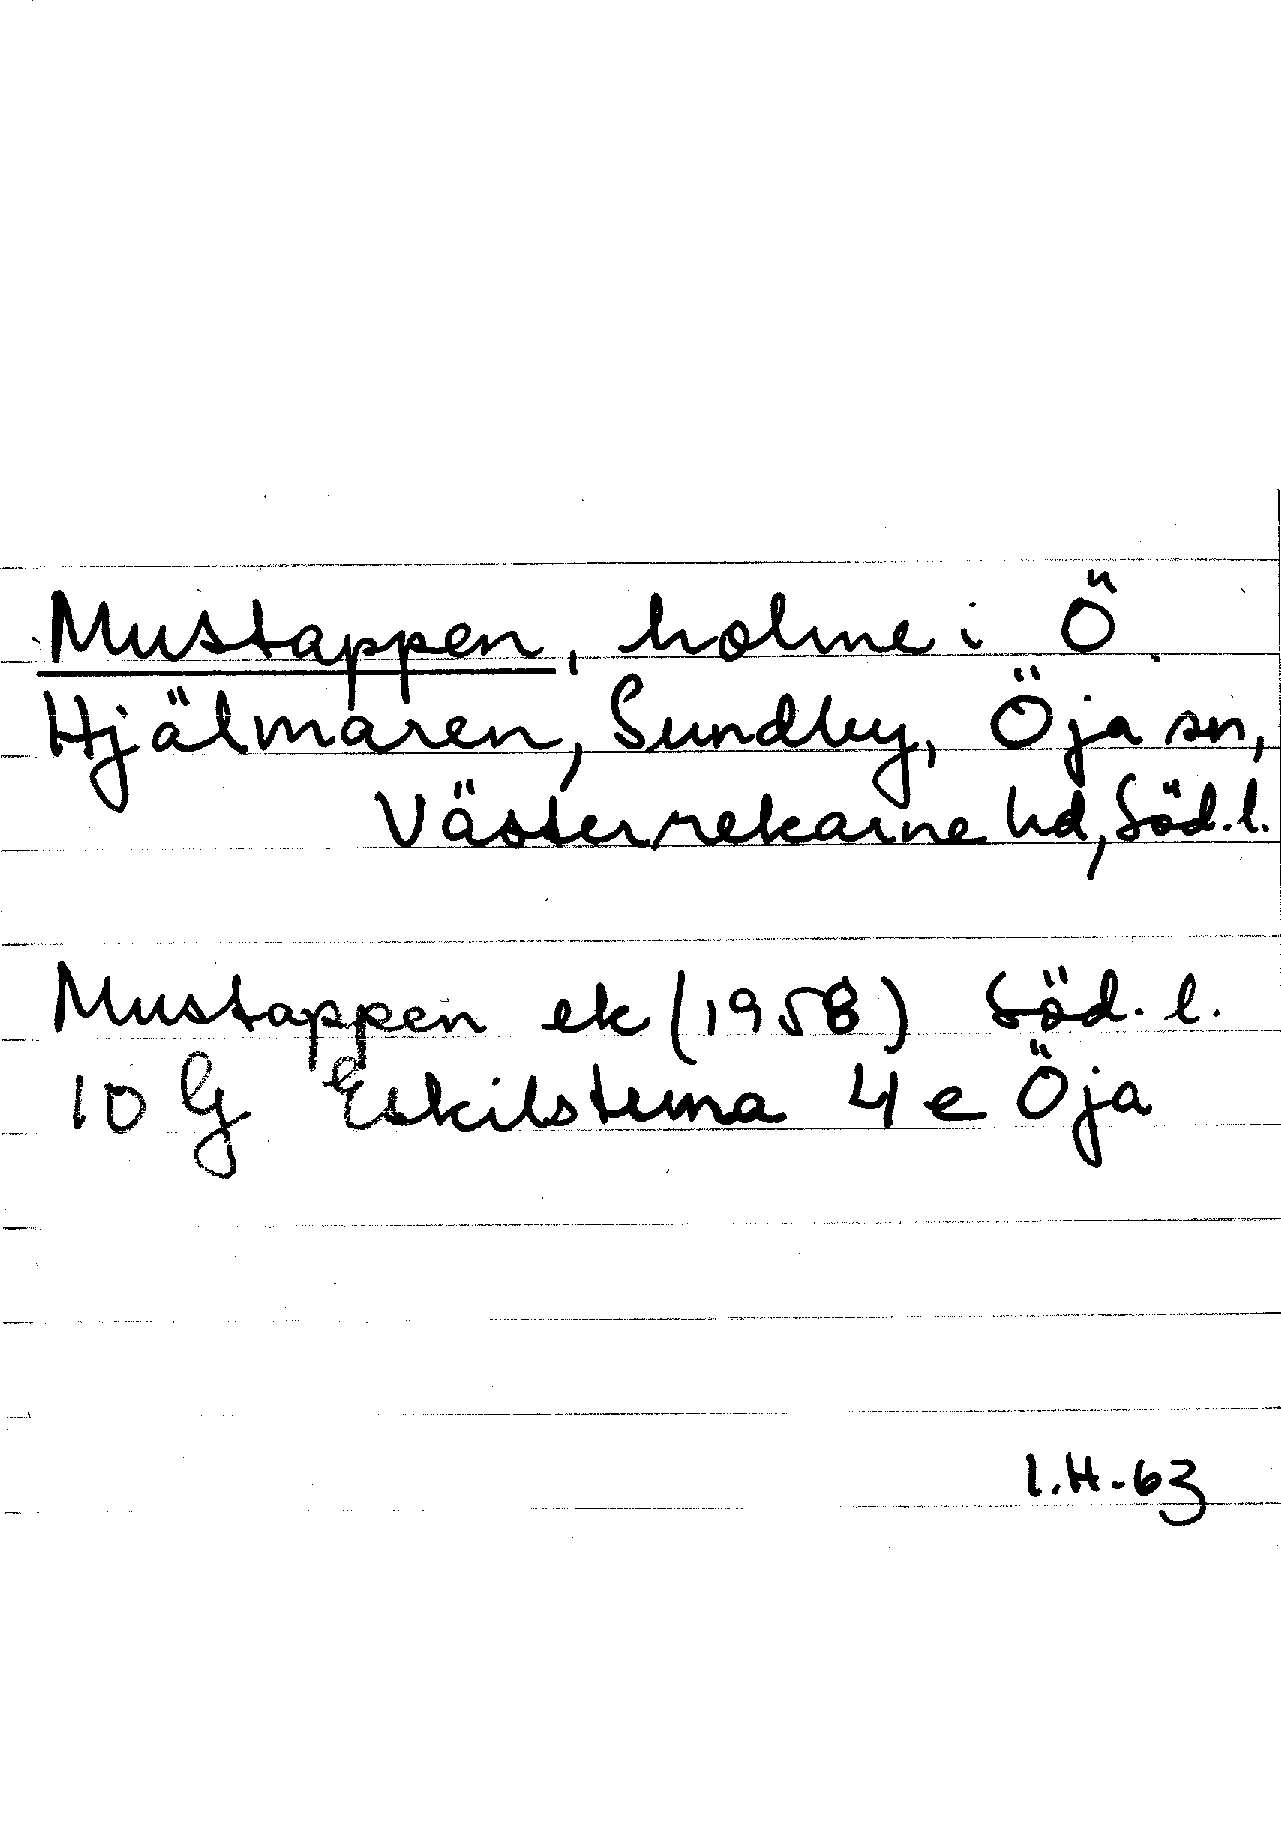 Mustappen, holme i Ö
Hjälmaren, Sundby, Öja sn,
Västerrekarne hd, Söd.l.
Mustappen ek (1958) Söd. l.
10 G Eskilstuna 4 e Öja
I.H.-63